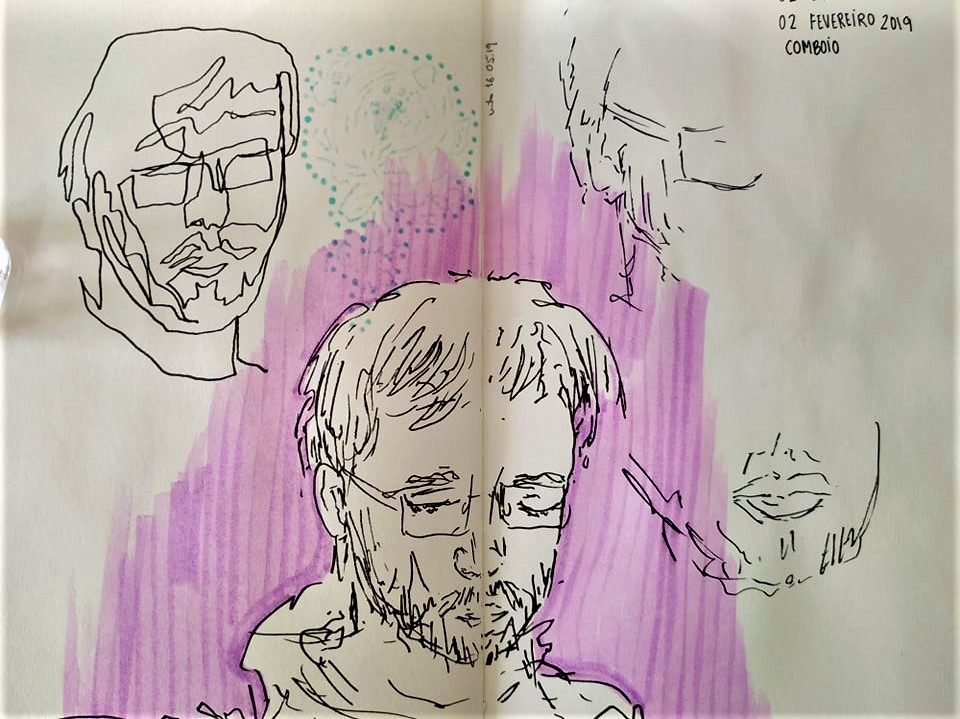 02 FEVEREIRO 2019
COMBOIO
16 05.19